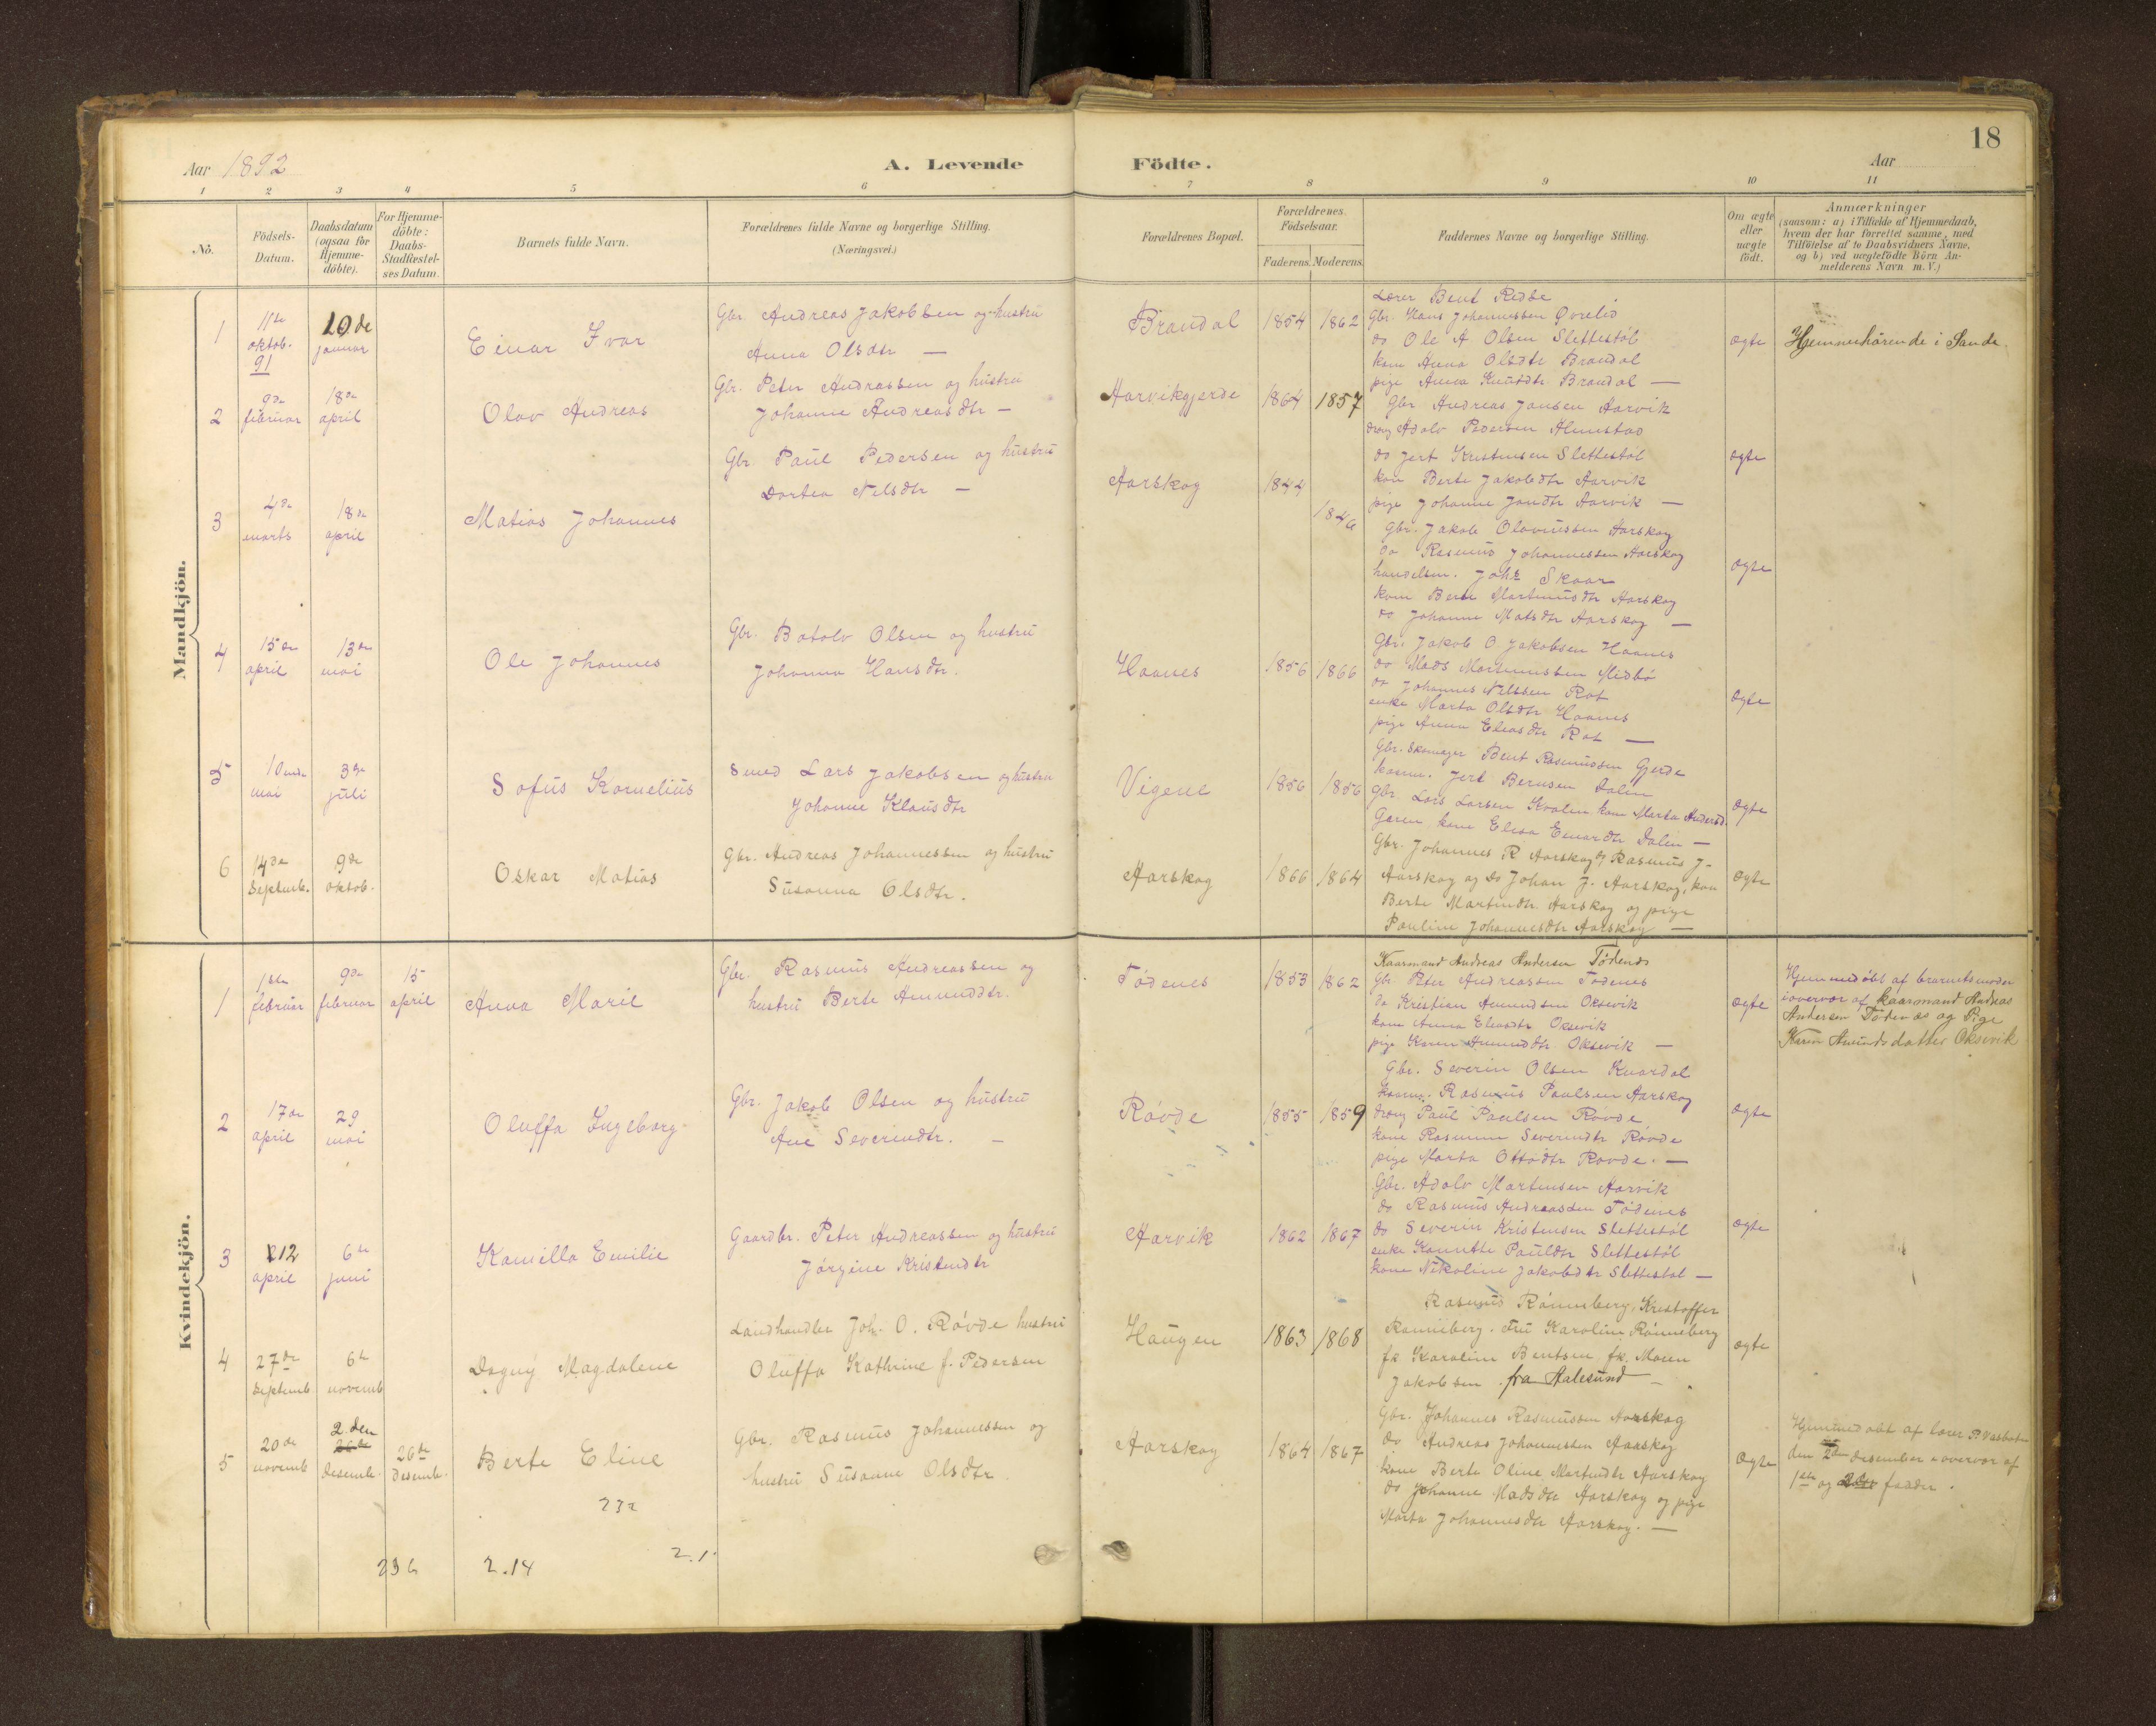 18
Aar 1892
A. Levende Födte.
Aar
1 2 3 4 5 6 7 8 9 10 11
Nô.
Födsels-Datum.
Daabsdatum (ogsaa for Hjemme-döbte).
For Hjemme-döbte: Daabs-Stadfæstel-ses Datum.
Barnets fulde Navn.
Forældrenes fulde Navne og borgerlige Stilling.
(Næringsvei.)
Forældrenes Bopæl.
Forældrenes Födselsaar.
Faderens. Moderens.
Faddernes Navne og borgerlige Stilling.
Om ægte eller uægte födt.
Anmærkninger
(saasom: a) i Tilfælde af Hjemmedaab,
hvem der har forrettet samme, med
Tilföielse af to Daabsvidners Navne,
og b) ved uægtefödte Börn An-
melderens Navn m. V.)
Mandkjön.
1
11te oktob. 91
10de januar
Einar Ivar
Gbr. Andreas Jakobsen og hustru
Anna Olsdtr —
Brandal
1854 1862
Lærer Bent Redse
Gbr. Hans Johannessen Øvrelid
do Ole A Olsen Slettestøl
kone Anna Olsdtr Brandal
pige Anna Knutdtr. Brandal —
ægte
Hjemmehörende i Sande.
2
9de februar
18de april
Olav Andreas
Gbr. Peter Andreassen og hustru
Johanne Andreasdtr —
Aarvikgjerde
1864 1857
Gbr Andreas Jansen Aarvik
dreng Adolv Pedersen Almestad
do Jert Kristensen Slettestøl
kone Berte Jakobdtr Aarvik
pige Johanne Jondtr Aarvik —
ægte
3
4de marts
18de april
Matias Johannes
Gbr. Paul Pedersen og hustru
Dortea Nilsdtr —
Aarskog
1844 1846
Gbr. Jakob Olavussen Aarskog
do Rasmus Johannessen Aarskog
handelsm. Johs Skaar
kone Berte Martinusdtr Aarskog
do Johanne Matsdtr Aarskog —
ægte
4
15de april
13de mai
Ole Johannes
Gbr. Botolv Olsen og hustru
Johanna Hansdtr.
Haanes
1856 1866
Gbr. Jakob O. Jakobsen Haanes
do Mads Martinussen Midbø
do Johannes Nilssen Rot
enke Marta Olsdtr Haanes
pige Anna Eliasdtr Rot —
ægte
5
10ende mai
3die juli
Sofus Kornelius
Smed Lars Jakobsen og hustru
Johanne Klausdtr
Vigene
1856 1856
Gbr. Skomager Bent Rasmussen Gjerde
Jert Bernsen Dalen
Gbr Lars Larsen Kvalen kone Marta Andersd.
kone Elisa Einardtr Dalen —
ægte
6
14de Septemb.
9de oktob.
Oskar Matias
Gbr. Andreas Johannessen og hustru
Susanna Olsdtr.
Aarskog
1866 1864
Gbr. Johannes R Aarskog Rasmus J-
Aarskog og do Johan J. Aarskog, kone
Berte Martindtr. Aarskog og pige
Pauline Johannesdtr Aarskog —
ægte
Kvindekjön.
1
1ste februar
9de februar
15 april
Anna Marie
Gbr. Rasmus Andreassen og
hustru Berte Amunddtr.
Tødenes
1853 1862
Kaarmand Andreas Andersen Tödenes
Gbr. Peter Andreassen Tødenes
do Kristian Amundsen Oksevik
kone Anna Eliasdtr Oksevik
pige Karen Amunddtr. Oksevik —
ægte
Hjemmedøbt af
iovervær af kaarmand Andreas
Andersen Tödenæs og Pige
Karen Amundsdatter Oksevik
2
17de april
29 mai
Oluffa Ingeborg
Gbr. Jakob Olsen og hustru
Ane Severindtr. —
Røvde
1855 1859
Gbr. Severin Olsen Knardal
Rasmus Paulsen Aarskog
dreng Paul Paulsen Røvde
kone Rasmine Severindtr Røvde
pige Marta Ottodtr Røvde. —
ægte
3
12 april
6te juni
Kamilla Emilie
Gaardbr. Peter Andreassen og hustru
Jørgine Kristendtr
Aarvik
1862 1867
Gbr. Adolv Martinsen Aarvik
do Rasmus Andreassen Tødenes
do Severin Kristensen Slettestøl
enke Kanutte Pauldtr Slettestøl
kone Nikoline Jakobdtr Slettestøl —
ægte
4
27de Septemb
6te novemb
Dagny Magdalene
Landhandler Joh. O. Røvde hustru
Oluffa Kathrine f. Pedersen
Haugen
1863 1868
Rasmus Rønneberg, Kristoffer
Rønneberg. Fru Karoline Rønneberg
fk Karoline Bentsen fk. Maren
Jakobsen fra Aalesund —
ægte
5
20de novemb
2.den desemb.
26de desemb.
Berte Eline
Gbr. Rasmus Johannessen og
hustru Susanne Olsdtr.
Aarskog
1864 1867
Gbr. Johannes Rasmussen Aarskog
do Andreas Johannessen Aarskog
kone Berte Oline Martindtr Aarskog
do Johanne Madsdtr Aarskog og pige
Marta Johannesdtr Aarskog. —
ægte
Hjemmedøbt af lærer P. Vasbotn
den 2den desember i overvær af
1ste og fadder.
232
236 2.14 2.1